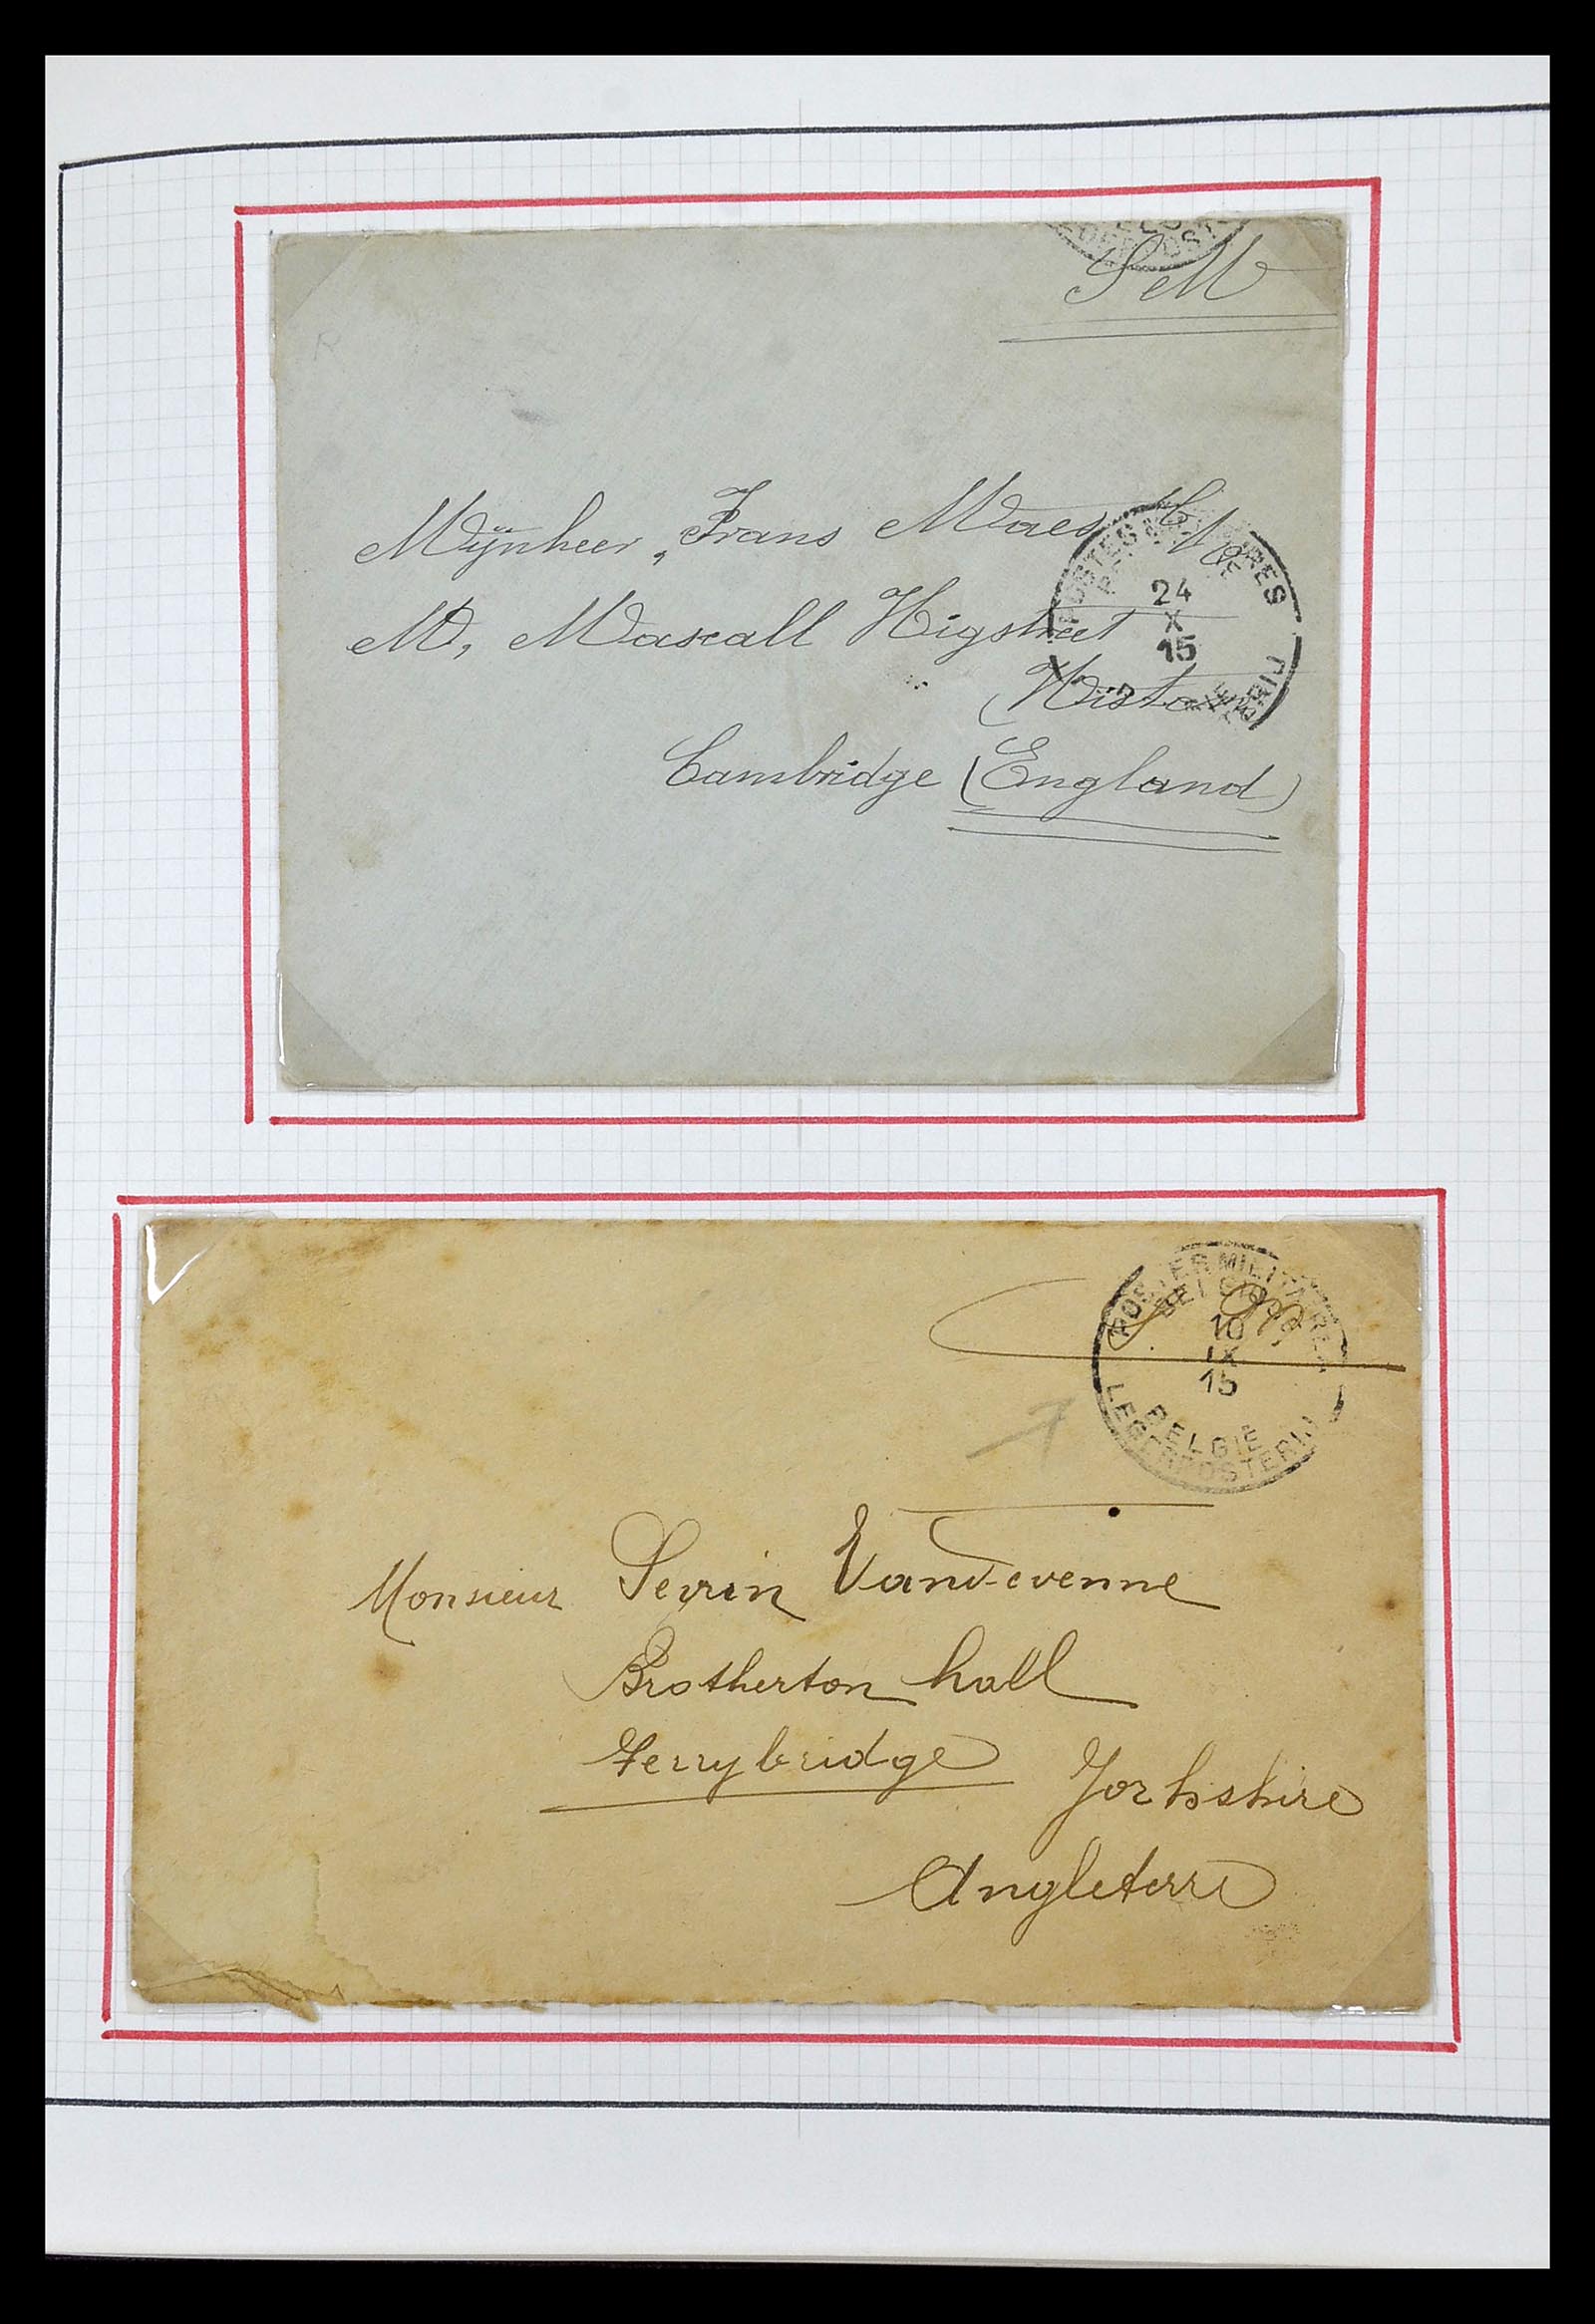 S M
Mijnheer, Frans Maes
POSTES MILITAIRES
24
X
15
M, Mascall Higstreet
Histon
Cambridge (England)
POSTES MILITAIRES
BELGIQUE
S. M.
10
IX
15
BELGIË
LEGERPOSTERIJ
Monsieur Sevrin Vandevenne
Brotherton hall
Ferrybridge Yorkshire
Angleterre